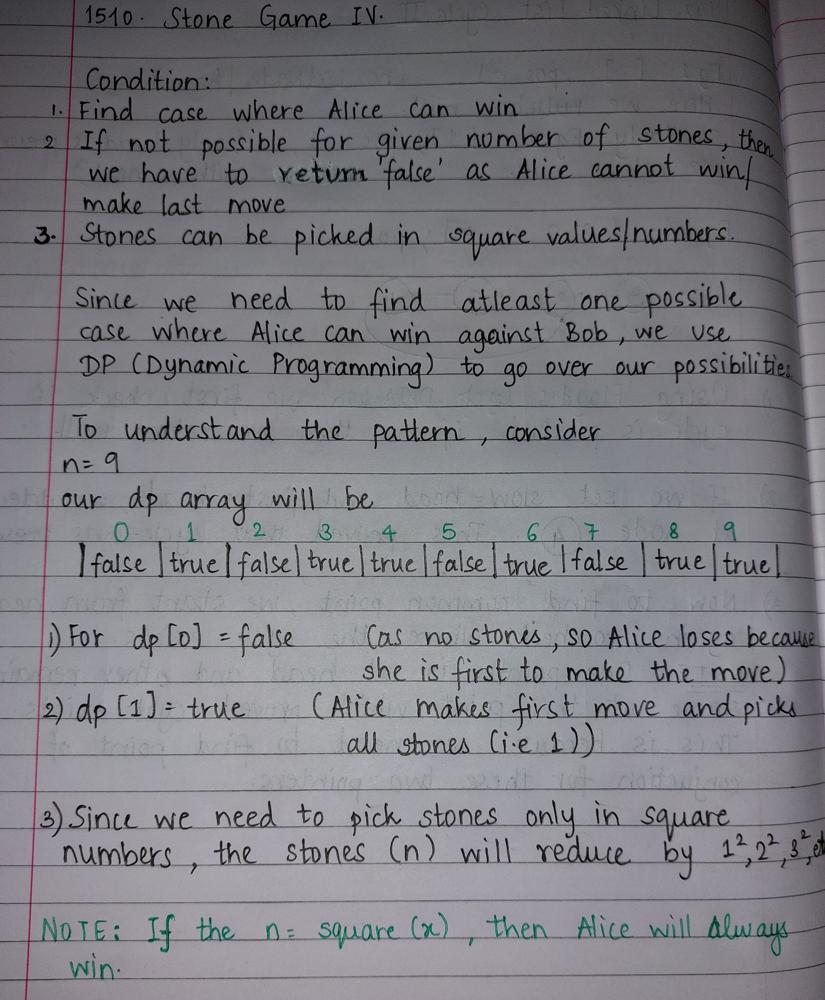 1510. Stone Game IV.
Condition:
1. Find case where Alice can win
2 If not possible for given number of stones, then
we have to return 'false' as Alice cannot win/
make last move
3. Stones can be picked in square values/numbers.
Since we need to find atleast one possible
case where Alice can win against Bob, we use
DP (Dynamic Programming) to go over our possibilities.
To understand the pattern, consider
n= 9
our dp array will be
0 1 2 3 4 5 6 7 8 9
|false|true|false|true|true|false|true|false|true|true|
1) For dp[0] = false (as no stones, so Alice loses because
she is first to make the move)
2) dp [1] = true (Alice makes first move and picks
all stones (i.e 1))
3) Since we need to pick stones only in square
numbers, the stones (n) will reduce by 1², 2², 3², et
NOTE: If the n= square (x), then Alice will always
win.